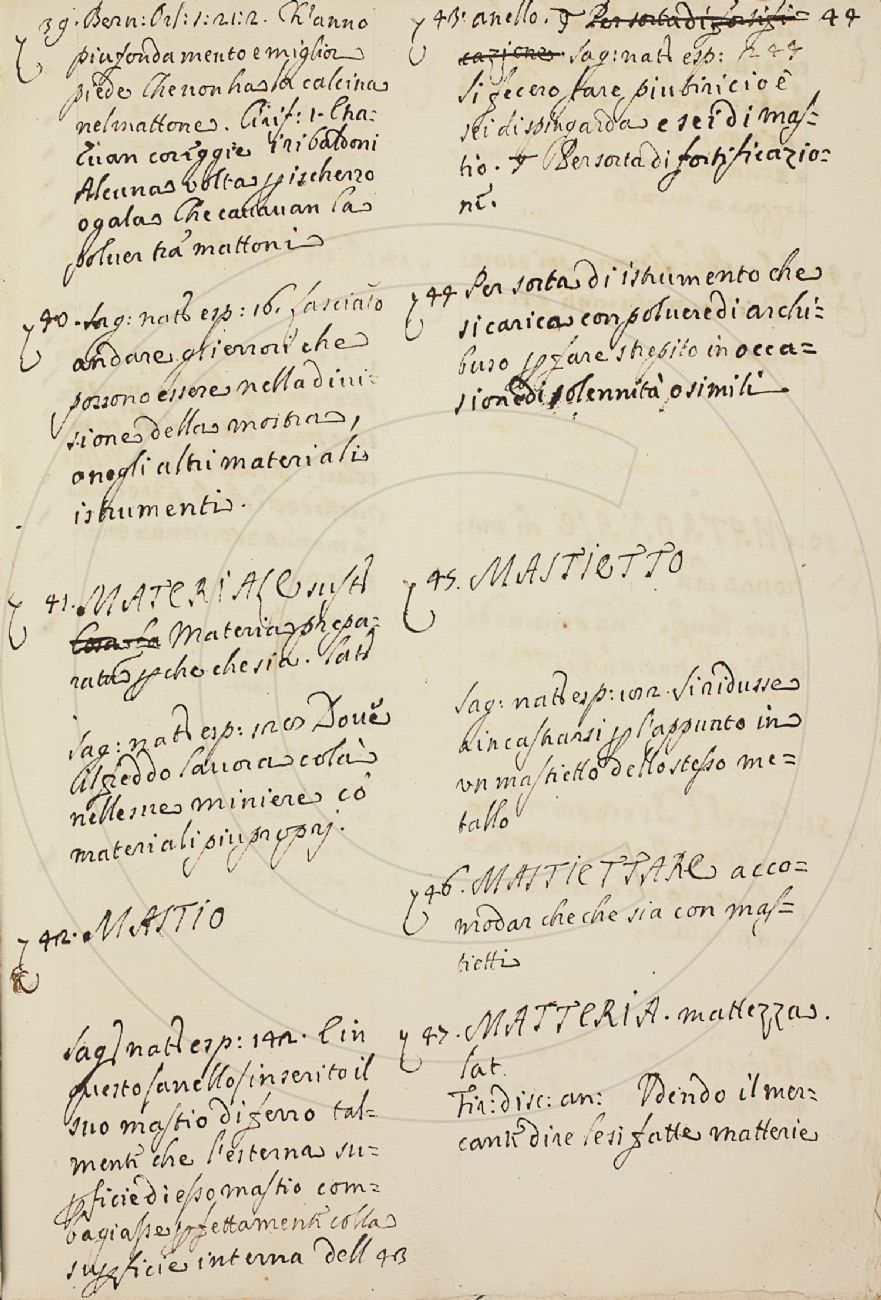 39. Bern: Orl: 1: 21: 2. N'anno
piu fondamento e miglior
piede Che non ha la calcina
nel mattone. Cirif: 1. Cha-
Tiri baldoni
Alcuna volta p ischerzo
o gala Che cavavan la
polver tra mattoni
40. Sag: nat esp: 16. fasciato
andare gli errori che
possono essere nella divi-
sione della mostra,
o negli altri materiali
istrumenti.
41. MATERIALE sust
Cosa la Materia prepa-
rata p che che sia. Lat
Sag: nat esp: 120 Dove
Il freddo lavora colà
nelle sue miniere cõ
materiali piu proprj.
42. MASTIO
Sag nat esp: 142. E in
questo l'anello inserito il
suo mastio di ferro tal-
mente che l'esterna su-
pficie di esso mastio com-
bagiasse pfettamente colla
supficie interna dell 43
43. anello. Per sorta di fortifi- 44
cazione Sag: nat esp: 244
Si fecero fare piu birici o è
sei di spingarda e sei di mas-
tio. Per sorta di fortificazio-
ne.
44 Per sorta di istrumento che
si carica con polvere di archi-
buso p fare strepito in occa-
sione di solennità o simili
45. MASTIETTO
Sag: nat esp: 102. Si ridusse
a incastrarsi p l'appunto in
un mastietto dello stesso me-
tallo
46. MASTIETTARE acco-
modar che che sia con mas-
tietti
47. MATTERIA. mattezza.
lat.
Fir: disc: an: Udendo il mer-
cante dire le sì fatte matterie